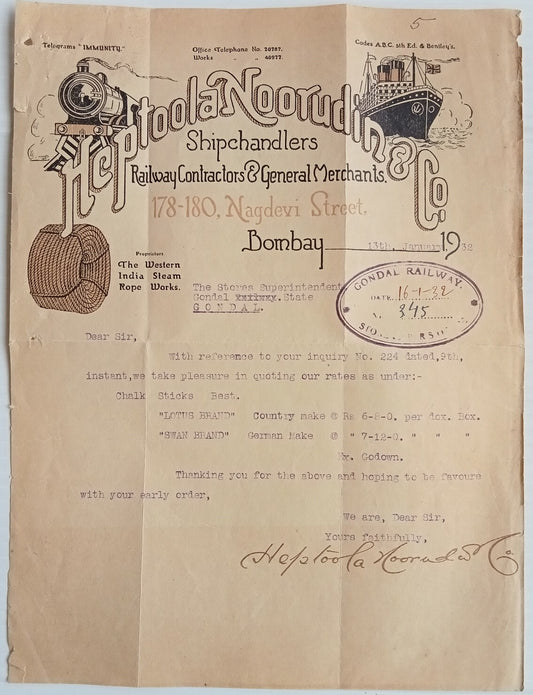 5
Telegrams "IMMUNITY."
Office Telephone No. 20787.
Works " " 40977.
Codes A.B.C. 5th Ed. & Bentley's.
Heptoola Noorudin & Co.
Shipchandlers
Railway Contractors & General Merchants.
178-180, Nagdevi Street,
Bombay 13th, January 1932
Proprietors
The Western
India Steam
Rope Works.
The Stores Superintendent
Gondal State
GONDAL.
GONDAL RAILWAY.
DATE 16-1-32
345
Dear Sir,
With reference to your inquiry No. 224 dated, 9th,
instant, we take pleasure in quoting our rates as under:-
Chalk Sticks Best.
"LOTUS BRAND" Country make @ Rs 6-8-0. per dox. Box.
"SWAN BRAND" German Make @ " 7-12-0. " " "
Ex. Godown.
Thanking you for the above and hoping to be favoure
with your early order,
We are, Dear Sir,
Yours faithfully,
Heptoola Noorudin & Co